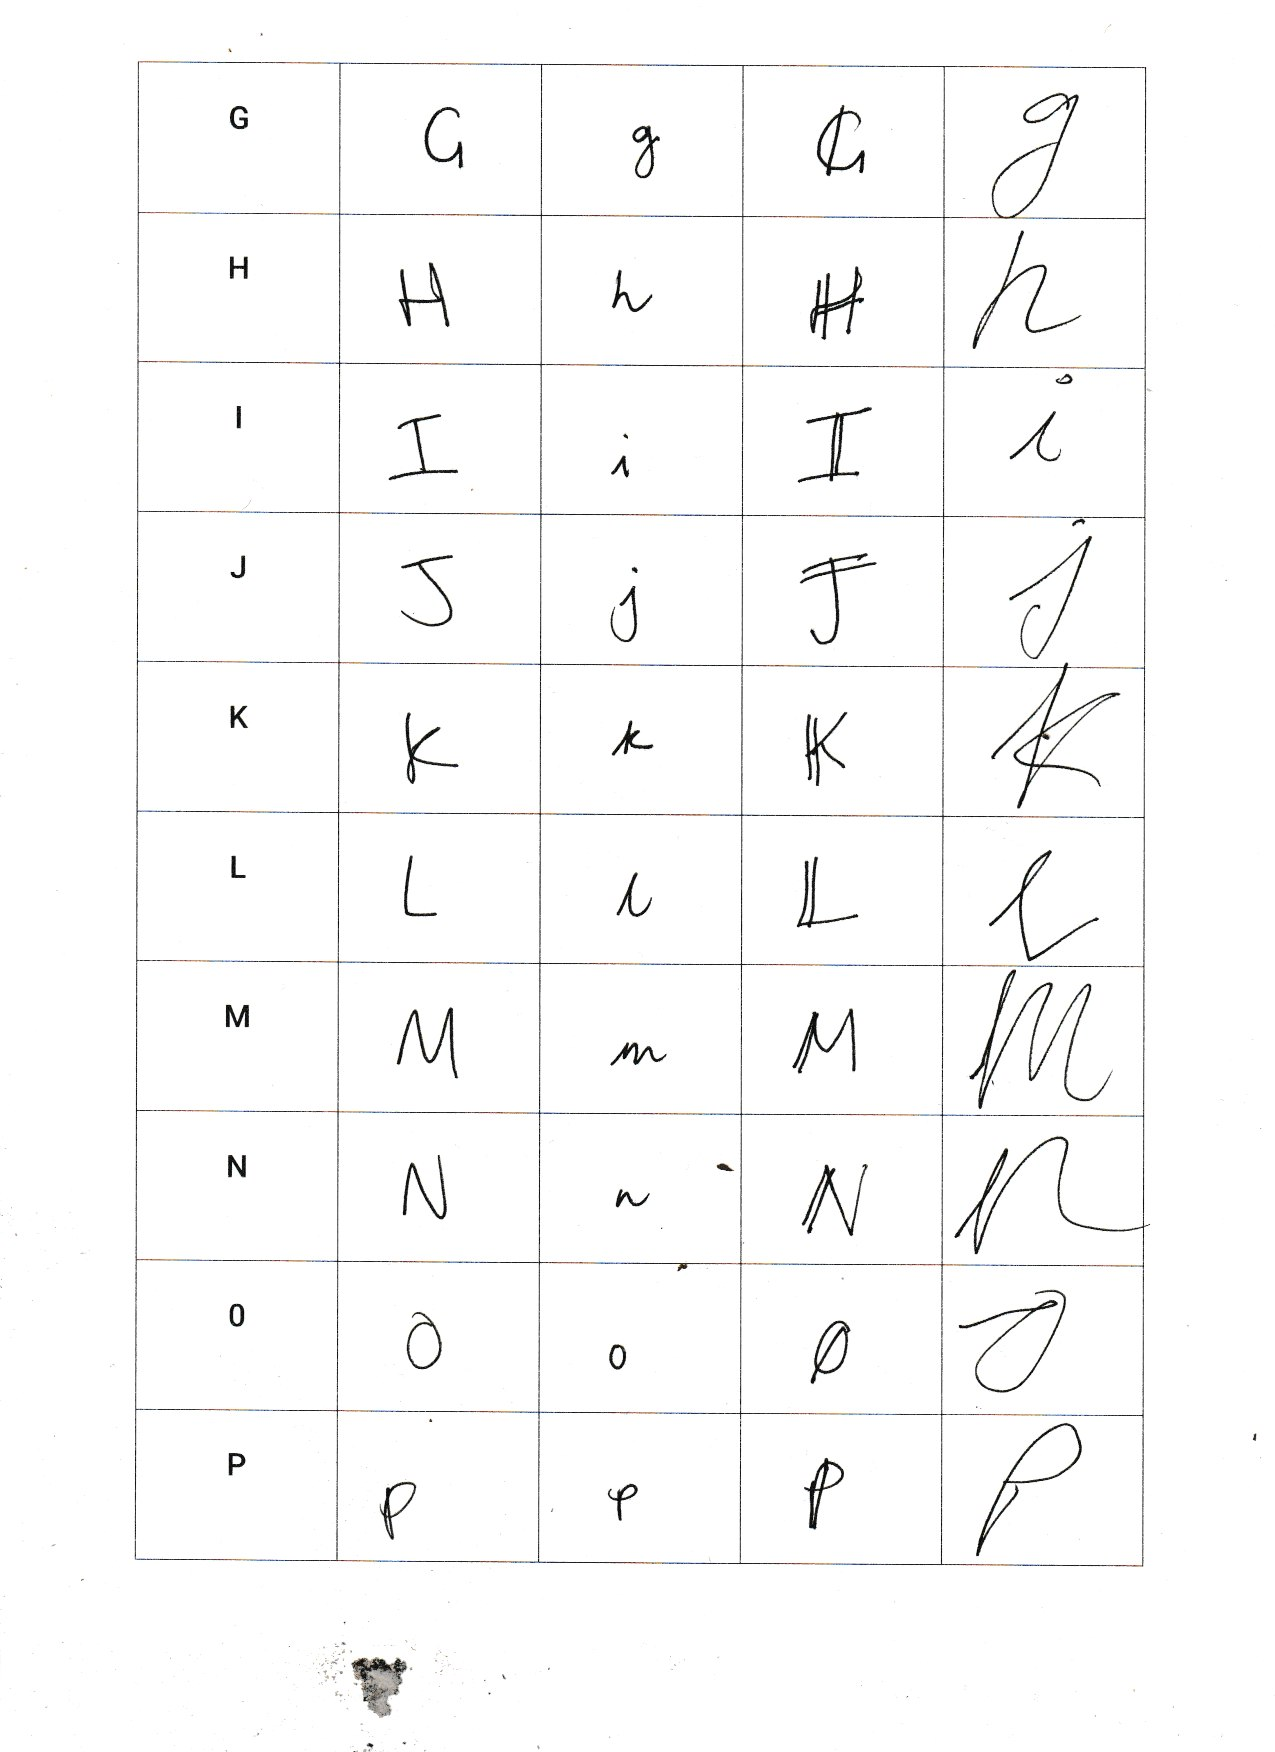 G G g G g
H H h H h
I I i I i
J J j J j
K K k K k
L L l L l
M M m M m
N N n N n
0 O o O o
P P p P p